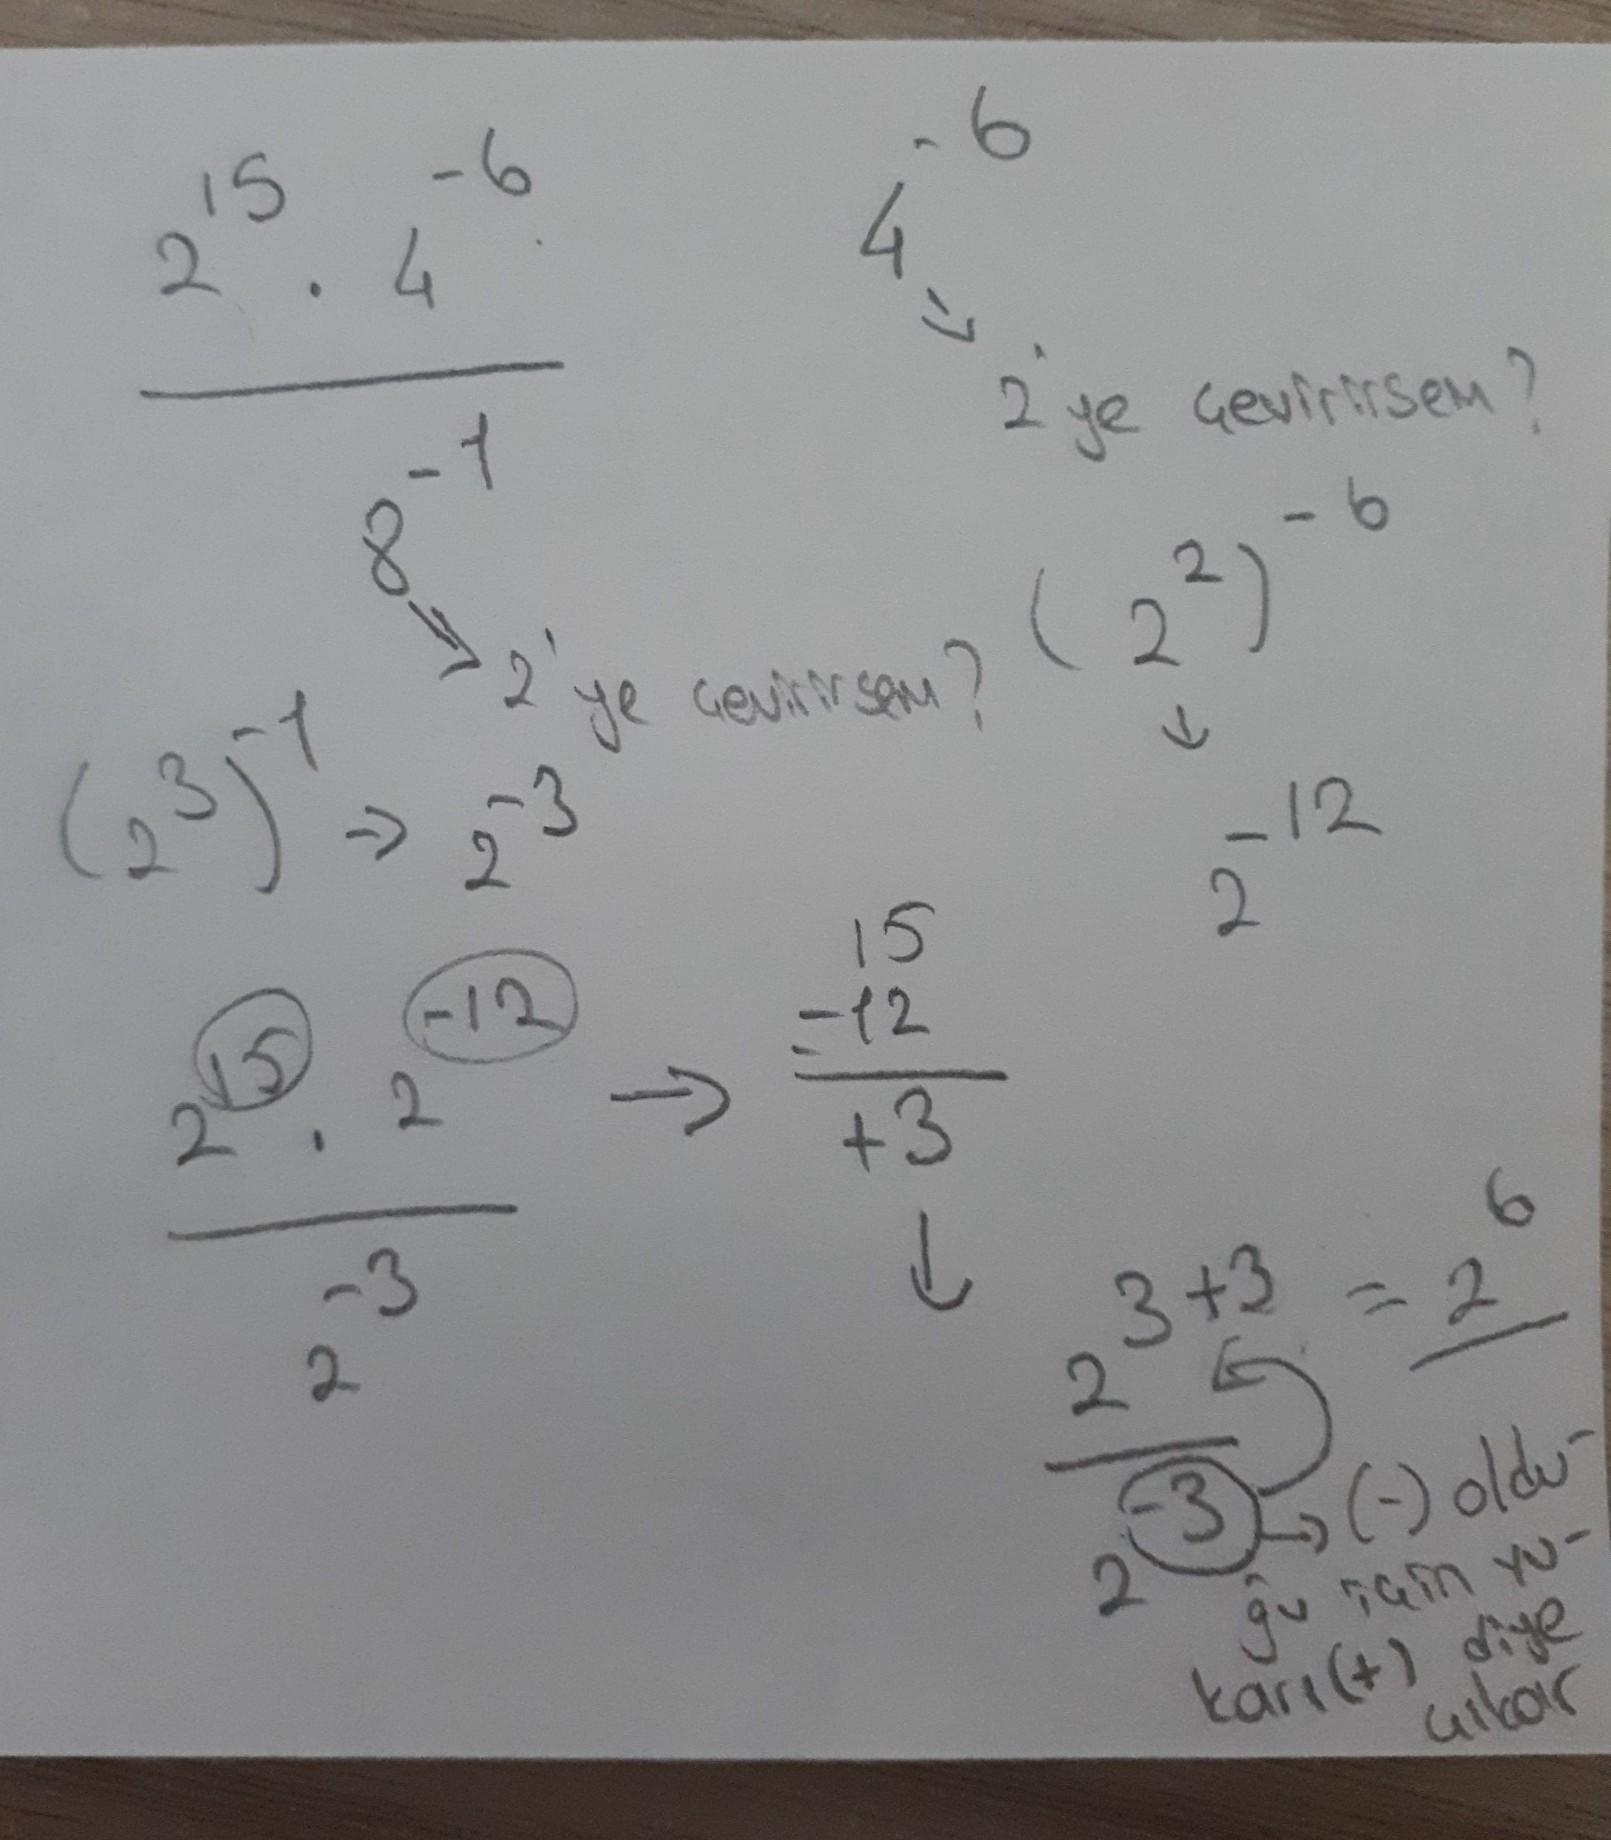 2^15 . 4^-6
8^-1
2'ye çevirirsem?
(2^3)^-1 → 2^-3
4^-6
2'ye çevirirsem?
(2^2)^-6
2^-12
2^15 . 2^-12
2^-3
15
-12
+3
2^3+3 = 2^6
2^-3 → (-) oldu-
ğu için yu-
karı (+) diye
çıkar